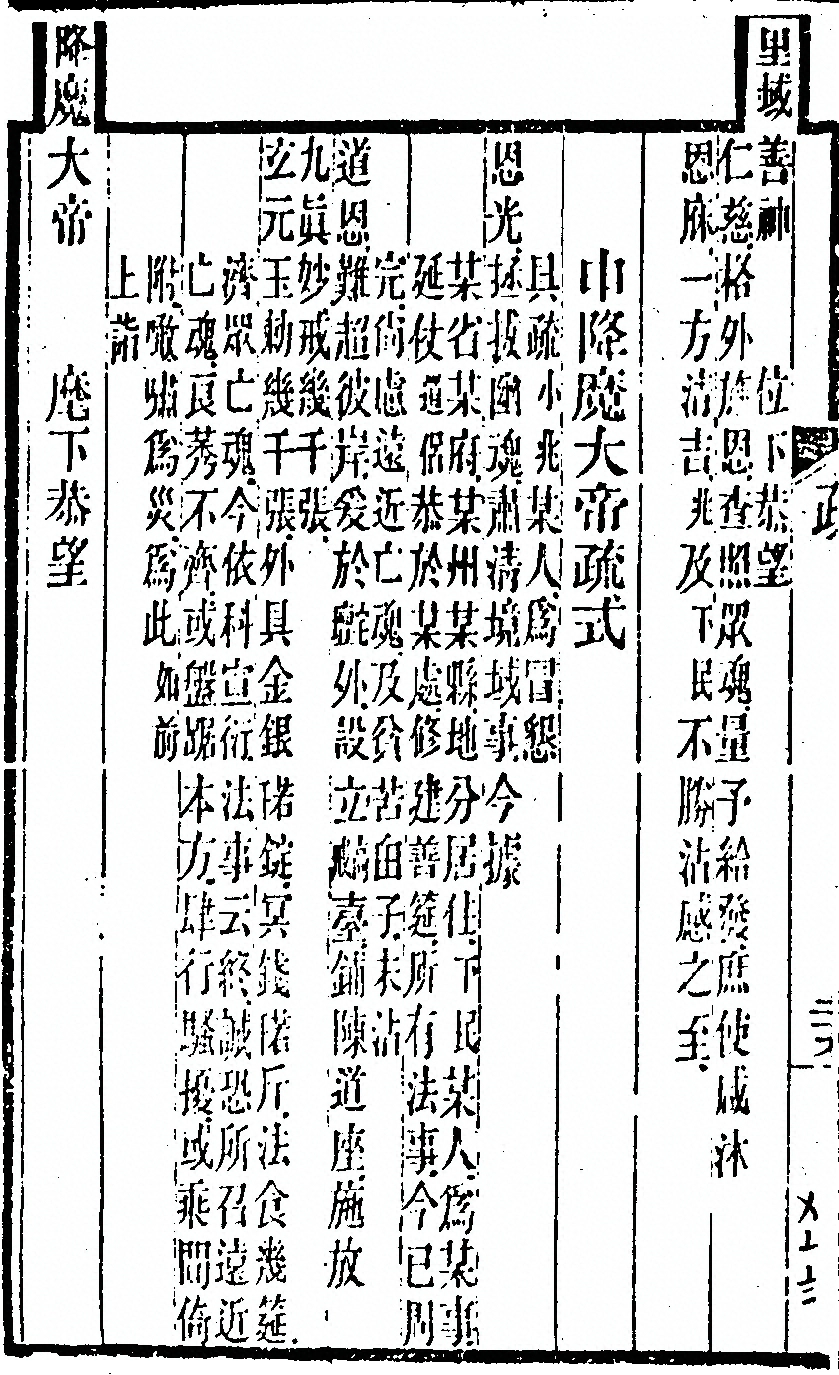 里域善神　位下恭望
仁慈格外施恩查照眾魂量予給發庶使咸沐
恩庥一方清吉兆及下民不勝沾感之至
申降魔大帝疏式
具疏小兆某人為冒懇
恩光拯拔幽魂肅清境域事今據
某省某府某州某縣地分居住下民某人為某事
延仗道侶恭於某處修建善筵所有法事今已周
完尚慮遠近亡魂及於苦由子未沾
道恩難超彼岸爰於壇外設立臺鋪陳道座施放
九眞妙戒幾千張
玄元玉勅幾千張外具金銀珞錠冥錢珞斤法食幾筵
濟眾亡魂今依科宣衍法事云終誠恐所召遠近
亡魂良莠不齊或盤踞本方肆行騷擾或乘間倚
附嘯為災為此如前
上詣
降魔大帝　麾下恭望